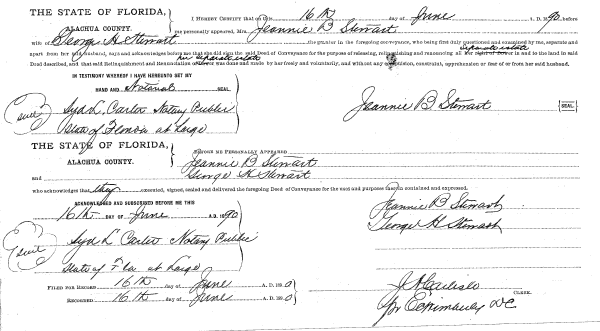 THE STATE OF FLORIDA, I HEREBY CERTIFY that on this 16th day of June A. D. 1890, before
ALACHUA COUNTY. me personally appeared, Mrs. Jeannie B Stewart
wife of George H Stewart the grantor in the foregoing conveyance, who being first duly questioned and examined by me, separate and
apart from her said husband, says and acknowledges before me that she did sign the said Deed of Conveyance for the purpose of releasing, relinquishing and renouncing all her separate estate in and to the land in said
Deed described, and that said Relinquishment and Renunciation her separate estate was done and made by her freely and voluntarily, and without any constraint, apprehension or fear of or from her said husband.
IN TESTIMONY WHEREOF I HAVE HEREUNTO SET MY
HAND AND Notarial SEAL.
Seal Syd L. Carter Notary Public Jeannie B Stewart SEAL
State of Florida at Large
THE STATE OF FLORIDA, BEFORE ME PERSONALLY APPEARED
ALACHUA COUNTY. Jeannie B Stewart
and George H Stewart
who acknowledge that they executed, signed, sealed and delivered the foregoing Deed of Conveyance for the uses and purposes therein contained and expressed.
ACKNOWLEDGED AND SUBSCRIBED BEFORE ME THIS
16th DAY OF June A. D. 1890 Jeannie B Stewart
George H Stewart
Seal Syd L Carter Notary Public
State of Fla at Large
FILED FOR RECORD 16th day of June A. D. 1890
RECORDED 16th day of June A. D. 1890 CLERK.
DC